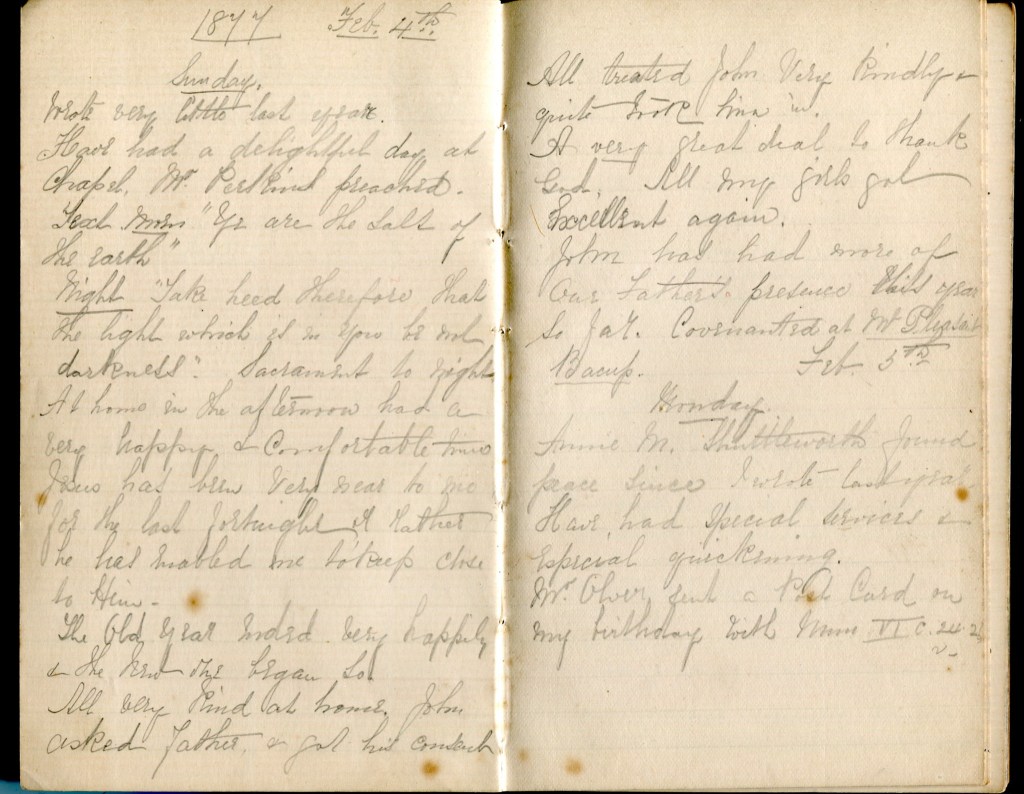 1877 Feb. 4th
Sunday.
Wrote very little last year.
Have had a delightful day at
Chapel. Mr. Perkins preached.
Text Morn "Ye are the Salt of
the earth"
Night "Take heed therefore that
the light which is in you be not
darkness". Sacrament to night
At home in the afternoon had a
very happy & Comfortable time
Jesus has been Very near to me
for the last fortnight or Rather
he has enabled me to keep close
to Him -
The Old Year ended very happily
& the new one began so.
All very kind at home. John
asked Father, & got his consent
All treated John Very kindly &
quite took him in.
A very great deal to thank
God. All my girls got
Excellent again.
John has had more of
Our Father's presence this year
so far. Covenanted at Mt Pleasant
Bacup. Feb. 5th
Monday.
Annie M. Shuttleworth found
peace Since I wrote last year
Have had special services &
especial quickening.
Mr. Olver sent a Post Card on
my birthday with Num VI c. 24.2
v-